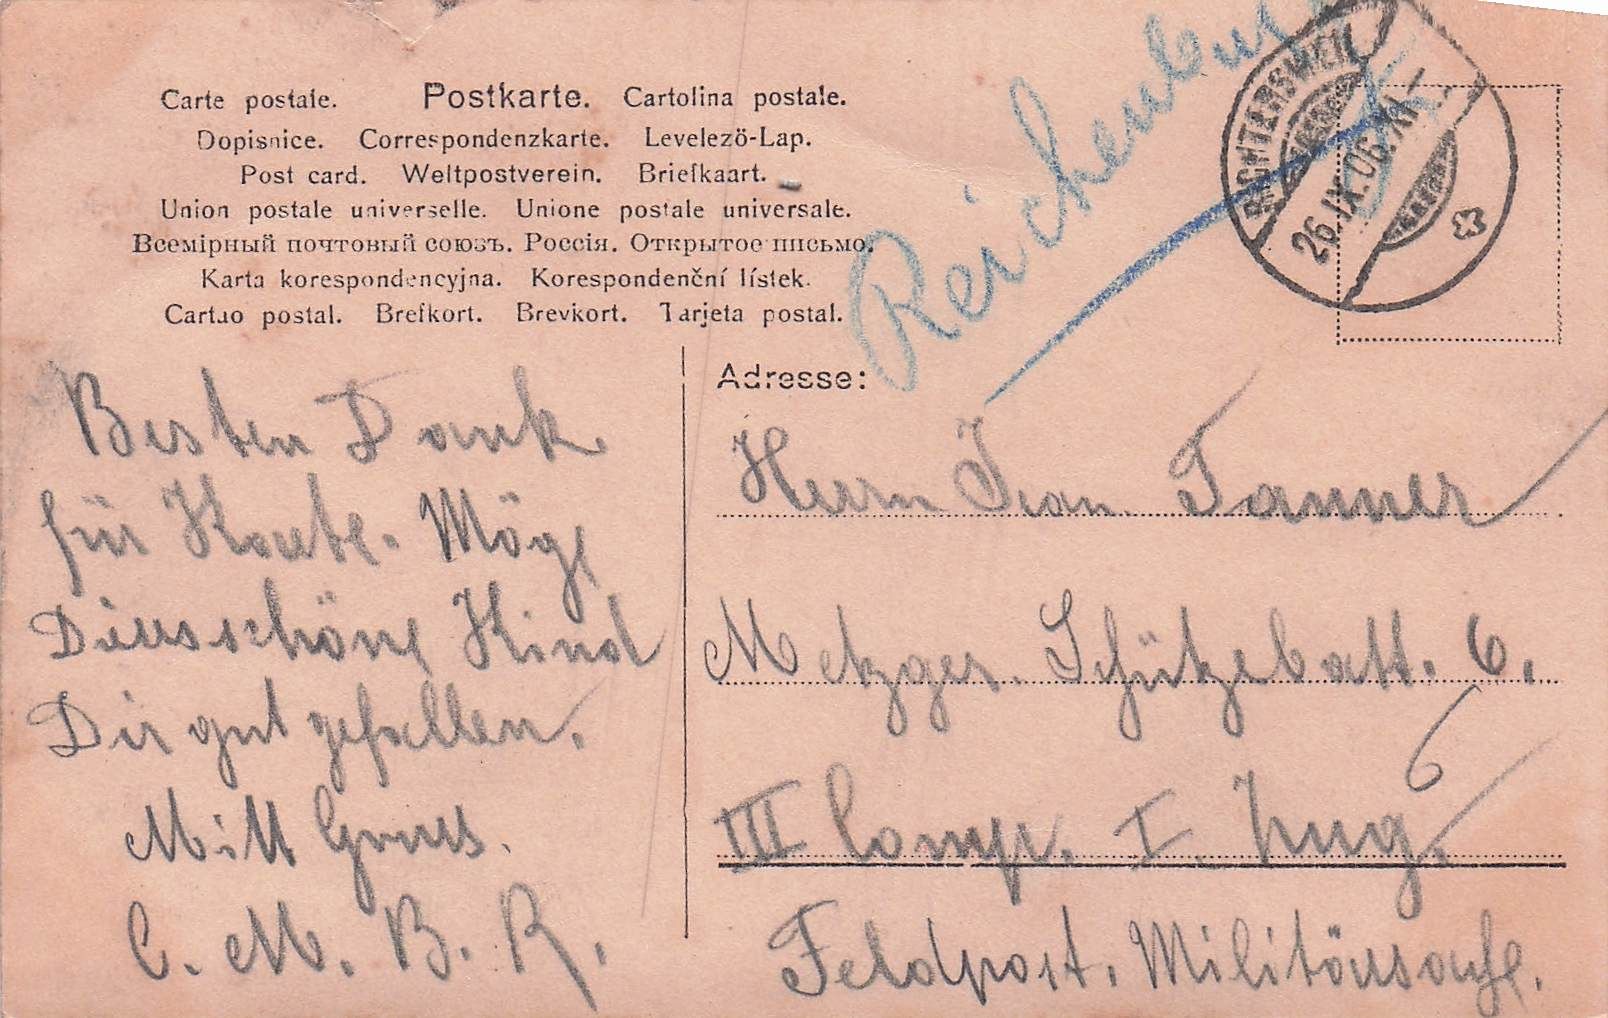 Carte postale. Postkarte. Cartolina postale.
Dopisnice. Correspondenzkarte. Levelezö-Lap.
Post card. Weltpostverein. Briefkaart.
Union postale universelle. Unione postale universale.
Всемірный почтовый союзъ. Россія. Открытое письмо.
Karta korespondencyjna. Korespondenční lístek.
Cartão postal. Brefkort. Brevkort. Tarjeta postal.
Reichenburg
RICHTERSWEIL
26.IX.06.XI–
Besten Dank
für Karte. Möge
Dieses schöne Kind
Dir gut gefallen.
Mitt Gruss.
C. M. B. R.
Adresse:
Herrn Jean Tanner
Metzger. Schützebatt. 6.
6
III Comp. I. Zug.
Feldpost. Militärsache.